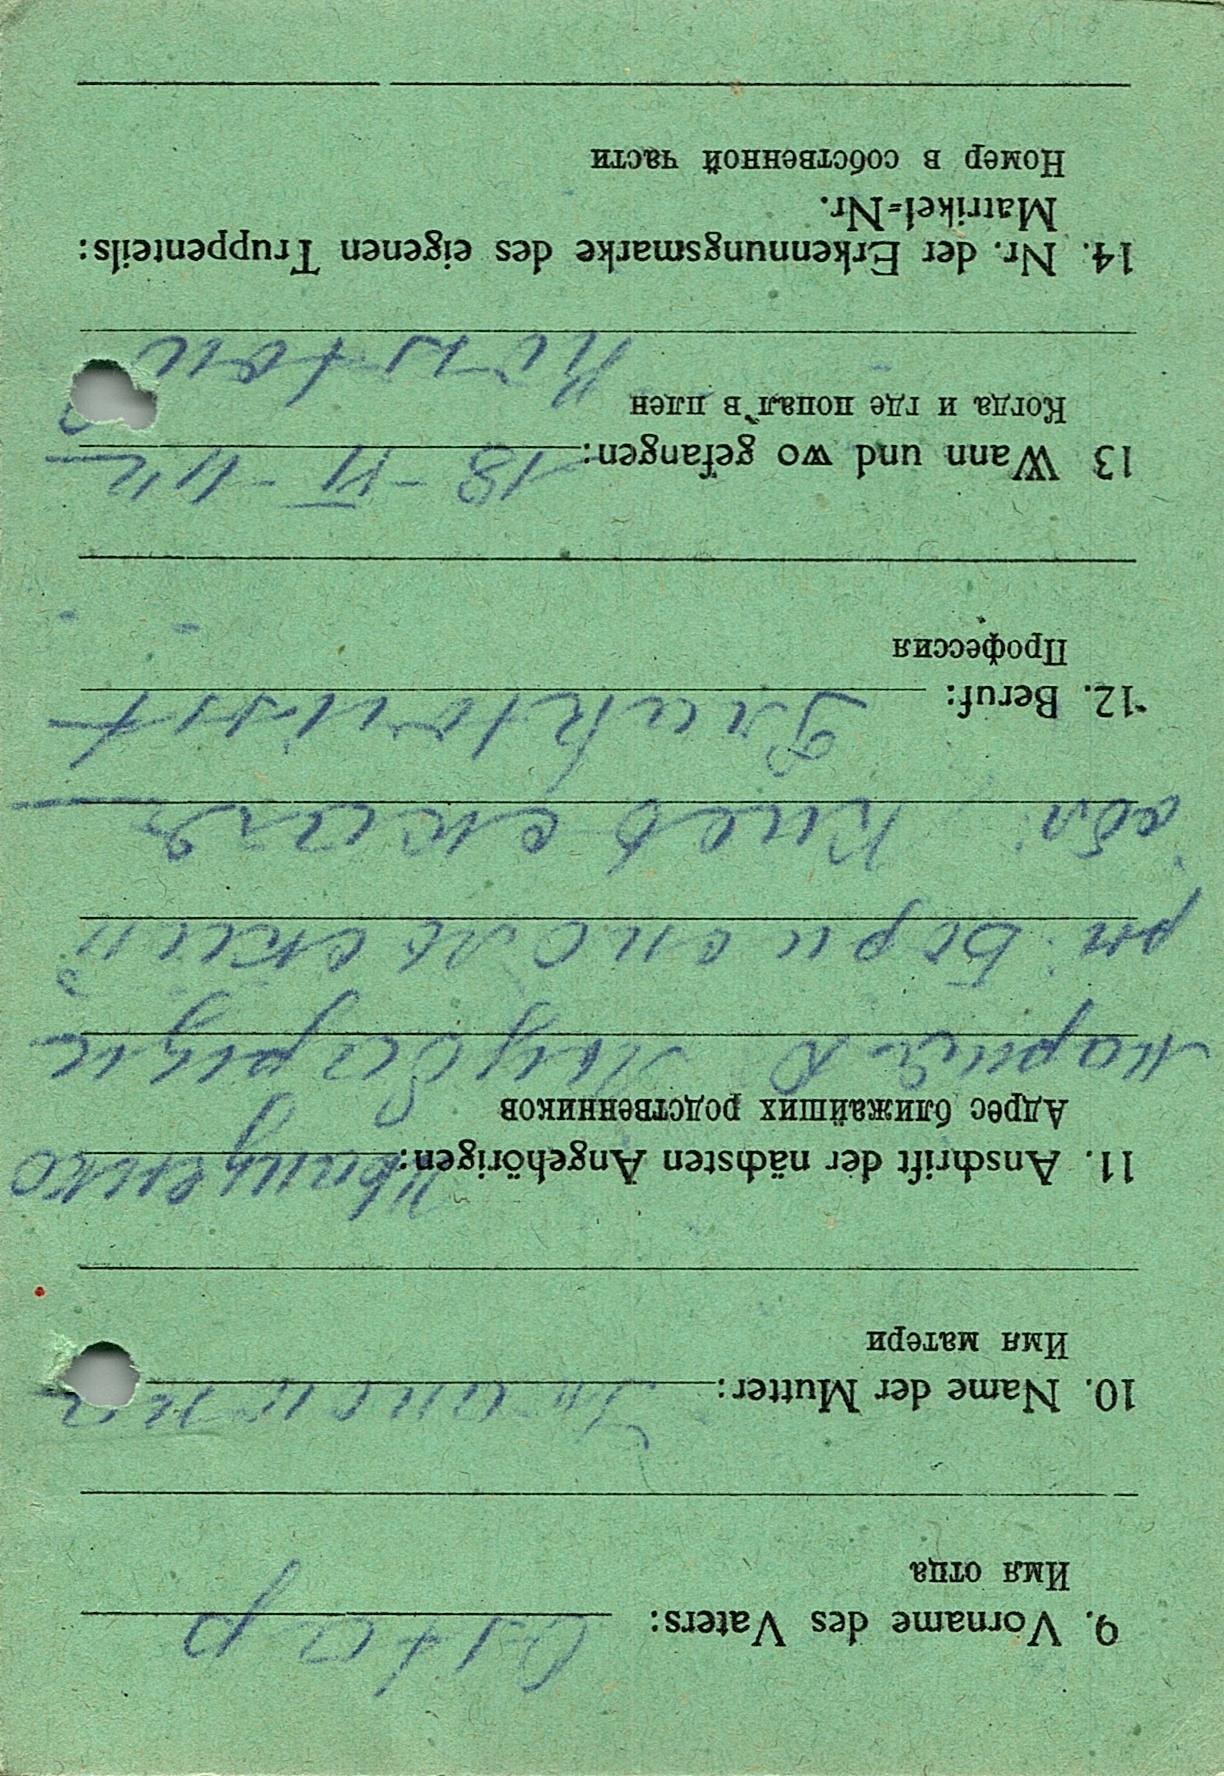 9. Vorname des Vaters: Остар
Имя отца
10. Name der Mutter:
Имя матери
11. Anschrift der nächsten Angehörigen: Иванценко
Адрес ближайших родственников
Мария
рн. Бориспольский
обл. Киевская
12. Beruf:
Профессия
13 Wann und wo gefangen: 18-VI-42
Когда и где попал в плен
14. Nr. der Erkennungsmarke des eigenen Truppenteils:
Matrikel=Nr.
Номер в собственной части